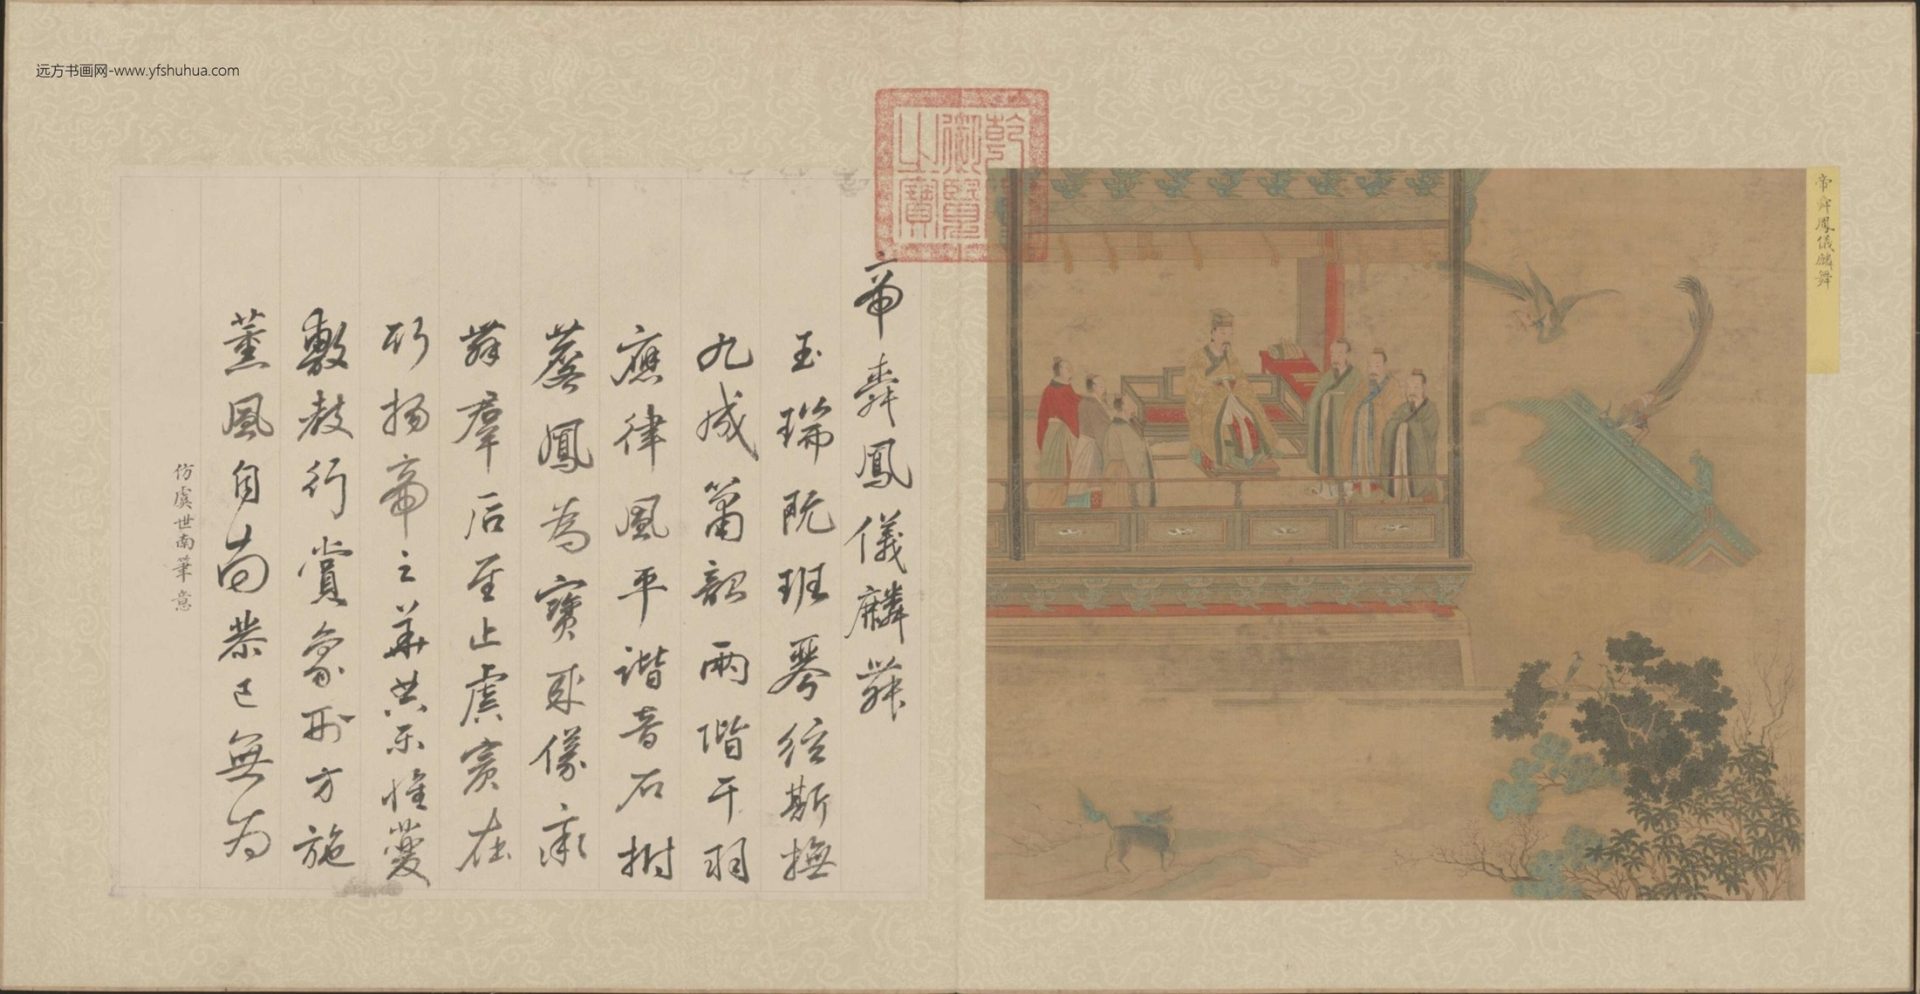 远方书画网-www.yfshuhua.com
帝舜鳳儀麟舞
乾隆
御覽
之寶
帝舜鳳儀麟舞
玉瑞既班琴絃斯撫
九成簫韶兩階干羽
應律風平諧音石拊
鳳為寶來儀
舞羣后至止虞賓在
揚帝之華典樂惟夔
敷教行賞象刑方施
薰風自南恭己無為
仿虞世南筆意